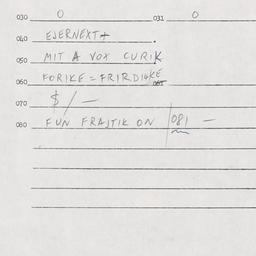 030 0 031 0
040 EJERNEXT+
050 MIT A VOX CURIK
060 FORIKE = FRIRDIGKE
070 $ / —
080 FUN FRAJTIK ON 081 —